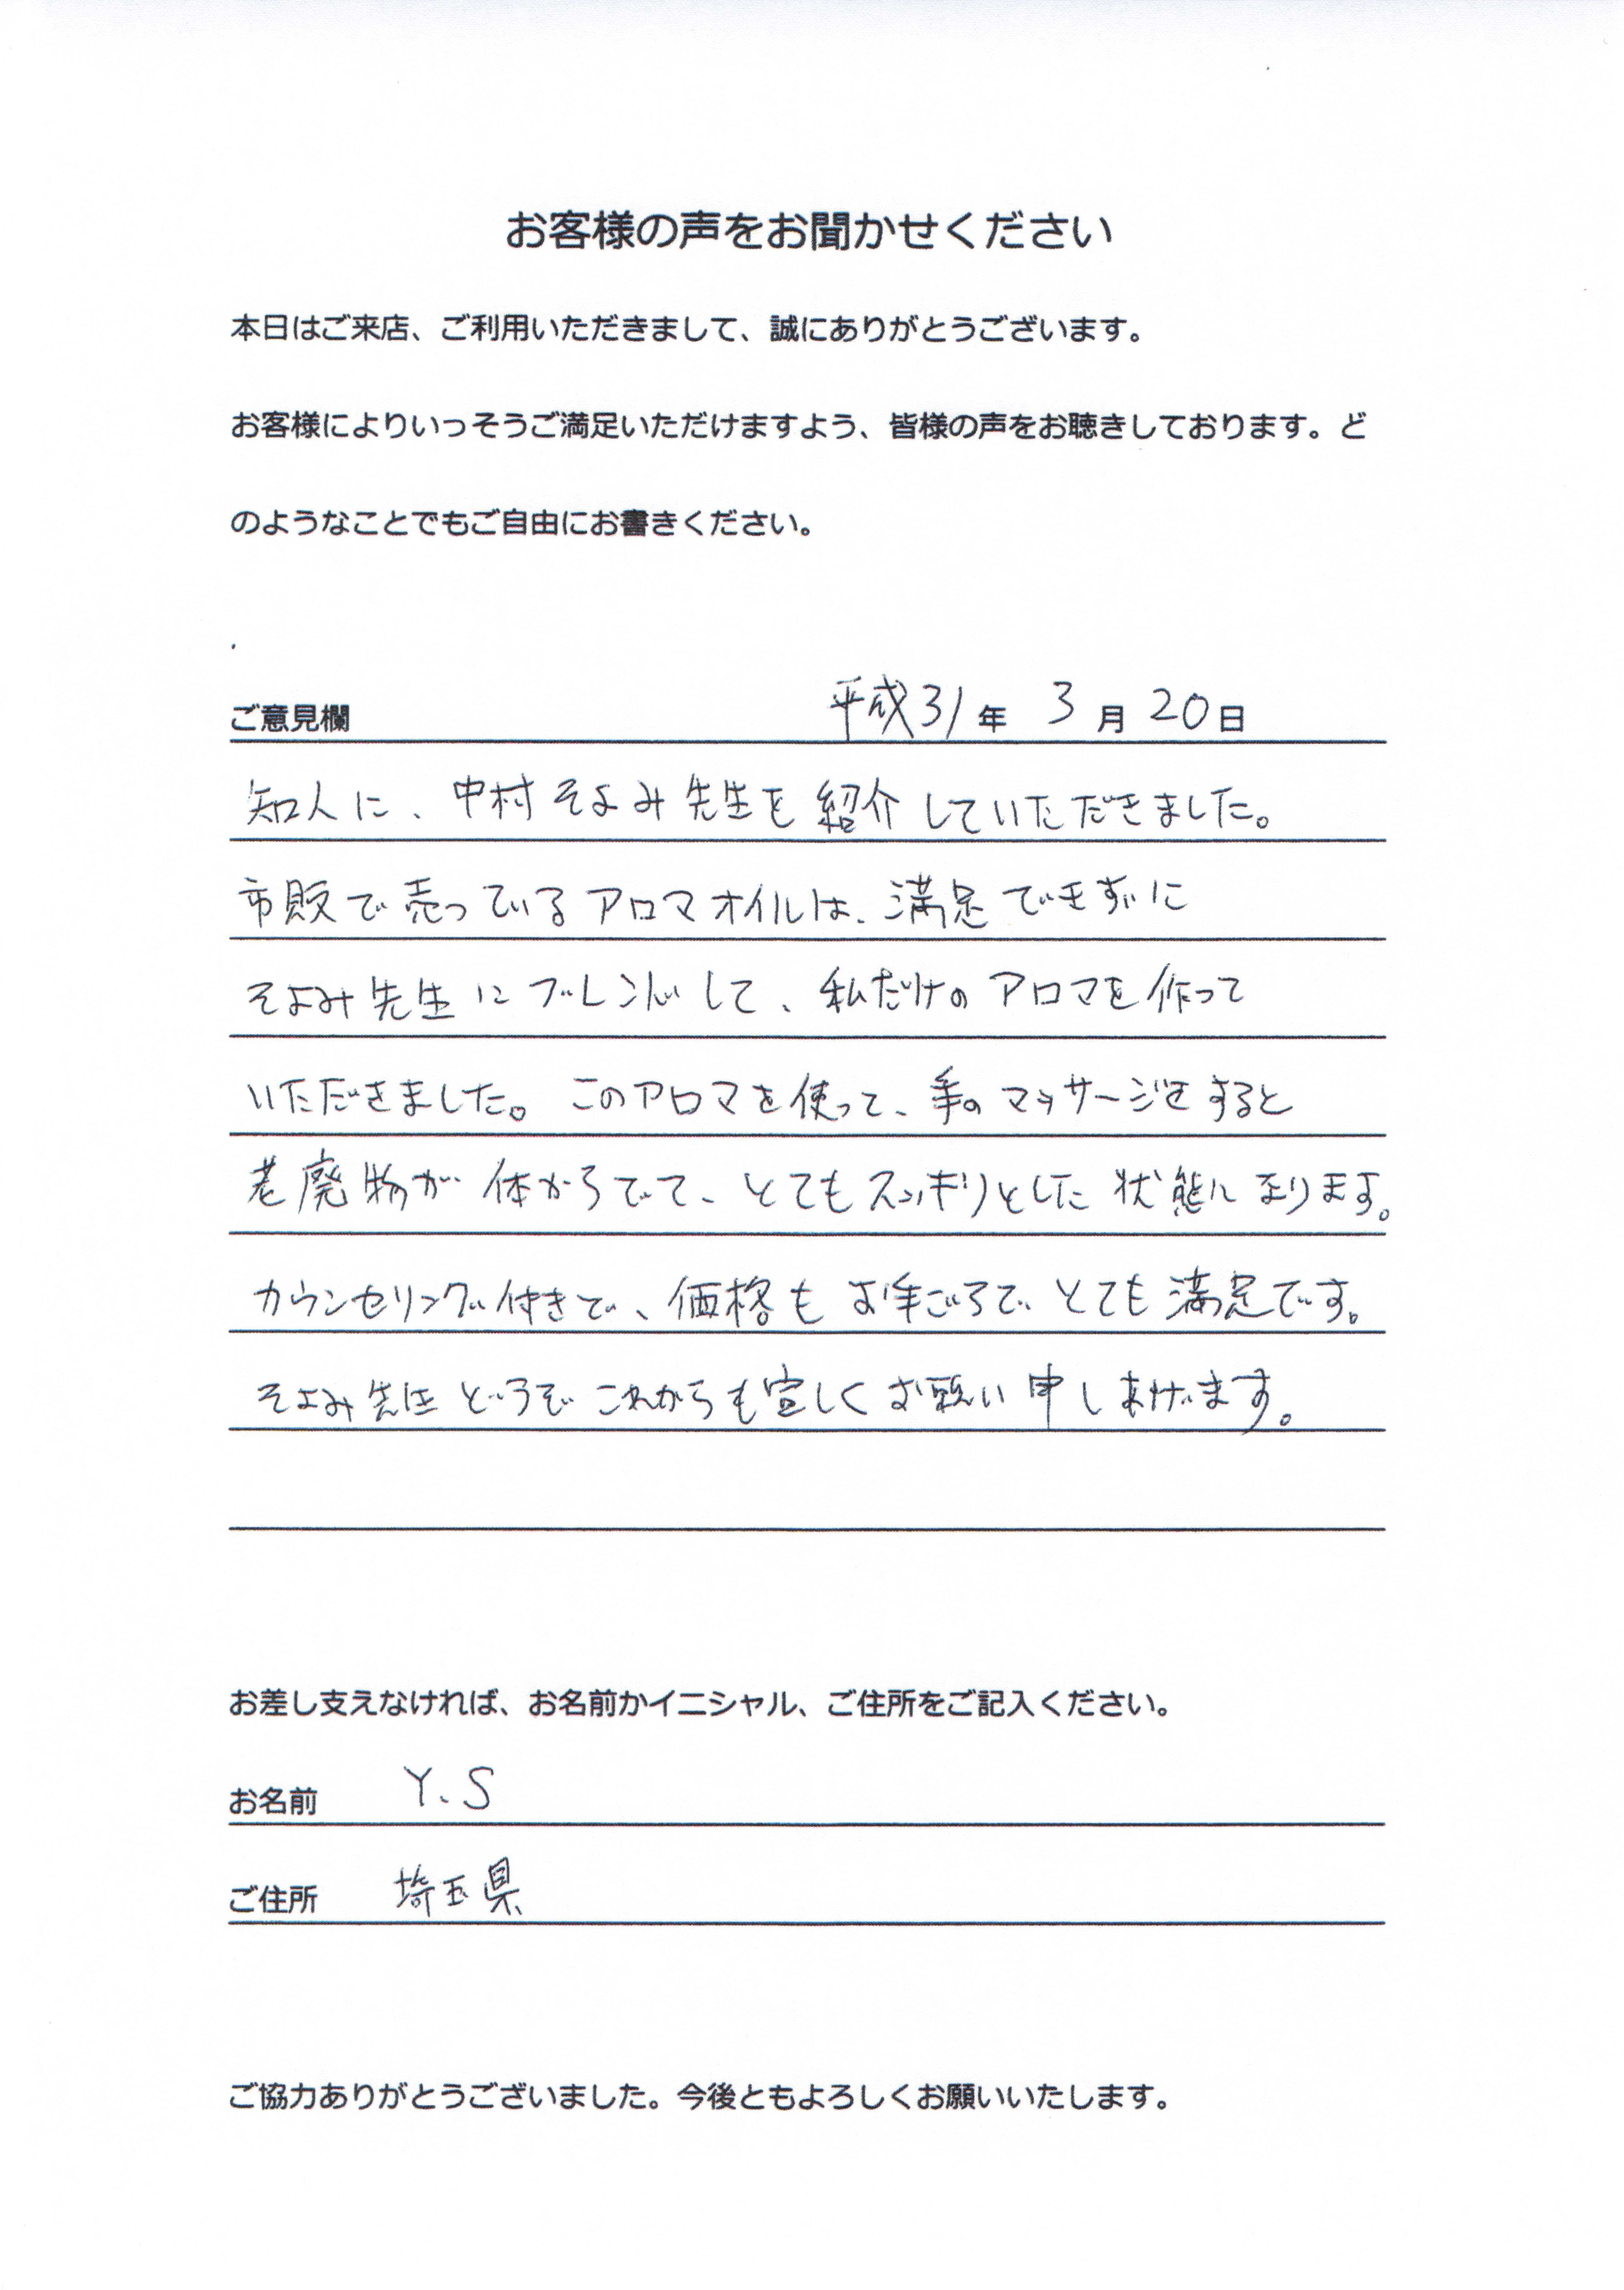 お客様の声をお聞かせください
本日はご来店、ご利用いただきまして、誠にありがとうございます。
お客様によりいっそうご満足いただけますよう、皆様の声をお聴きしております。ど
のようなことでもご自由にお書きください。
ご意見欄 平成31年 3月 20日
知人に、中村そよみ先生を紹介していただきました。
市販で売っているアロマオイルは、満足できずに
そよみ先生にブレンドして、私だけのアロマを作って
いただきました。このアロマを使って、手のマッサージをすると
老廃物が体からでて、とてもスッキリとした状態になります。
カウンセリング付きで、価格もお手ごろで、とても満足です。
そよみ先生どうぞこれからも宜しくお願い申しあげます。
お差し支えなければ、お名前かイニシャル、ご住所をご記入ください。
お名前 Y.S
ご住所 埼玉県
ご協力ありがとうございました。今後ともよろしくお願いいたします。